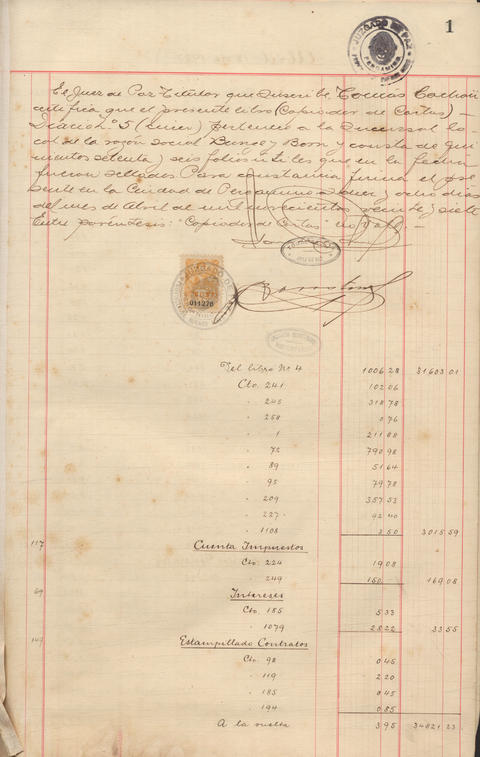 1
JUZGADO DE PAZ
PERGAMINO
El Juez de Paz Titular que suscribe Tomás
certifica que el presente libro (Copiador de Cartas) —
Diario nº 5 (cinco) pertenece a la sucursal lo-
cal de la razón social Bunge y Born y consta de qui-
nientos setenta y seis folios útiles que en la fecha
fueron sellados Para constancia firmo el pre-
sente en la Ciudad de Pergamino a diez y ocho días
del mes de Abril de mil novecientos veinte y siete
Entre paréntesis: "Copiador de Cartas" no vale. —
JUZGADO DE
011276
Del libro Nº 4 1006 28 31603 01
Cto. 241 102 06
" 245 318 78
" 258 0 76
" 1 211 88
" 72 790 98
" 89 51 64
" 95 79 78
" 209 357 53
" 227 92 40
" 1108 3 50 3015 59
117 Cuenta Impuestos
Cto. 224 19 08
" 249 150 169 08
69 Intereses
Cto. 185 5 33
" 1079 28 22 33 55
149 Estampillado Contratos
Cto. 98 0 45
" 119 2 20
" 185 0 45
" 194 0 85
A la vuelta 3 95 34821 23